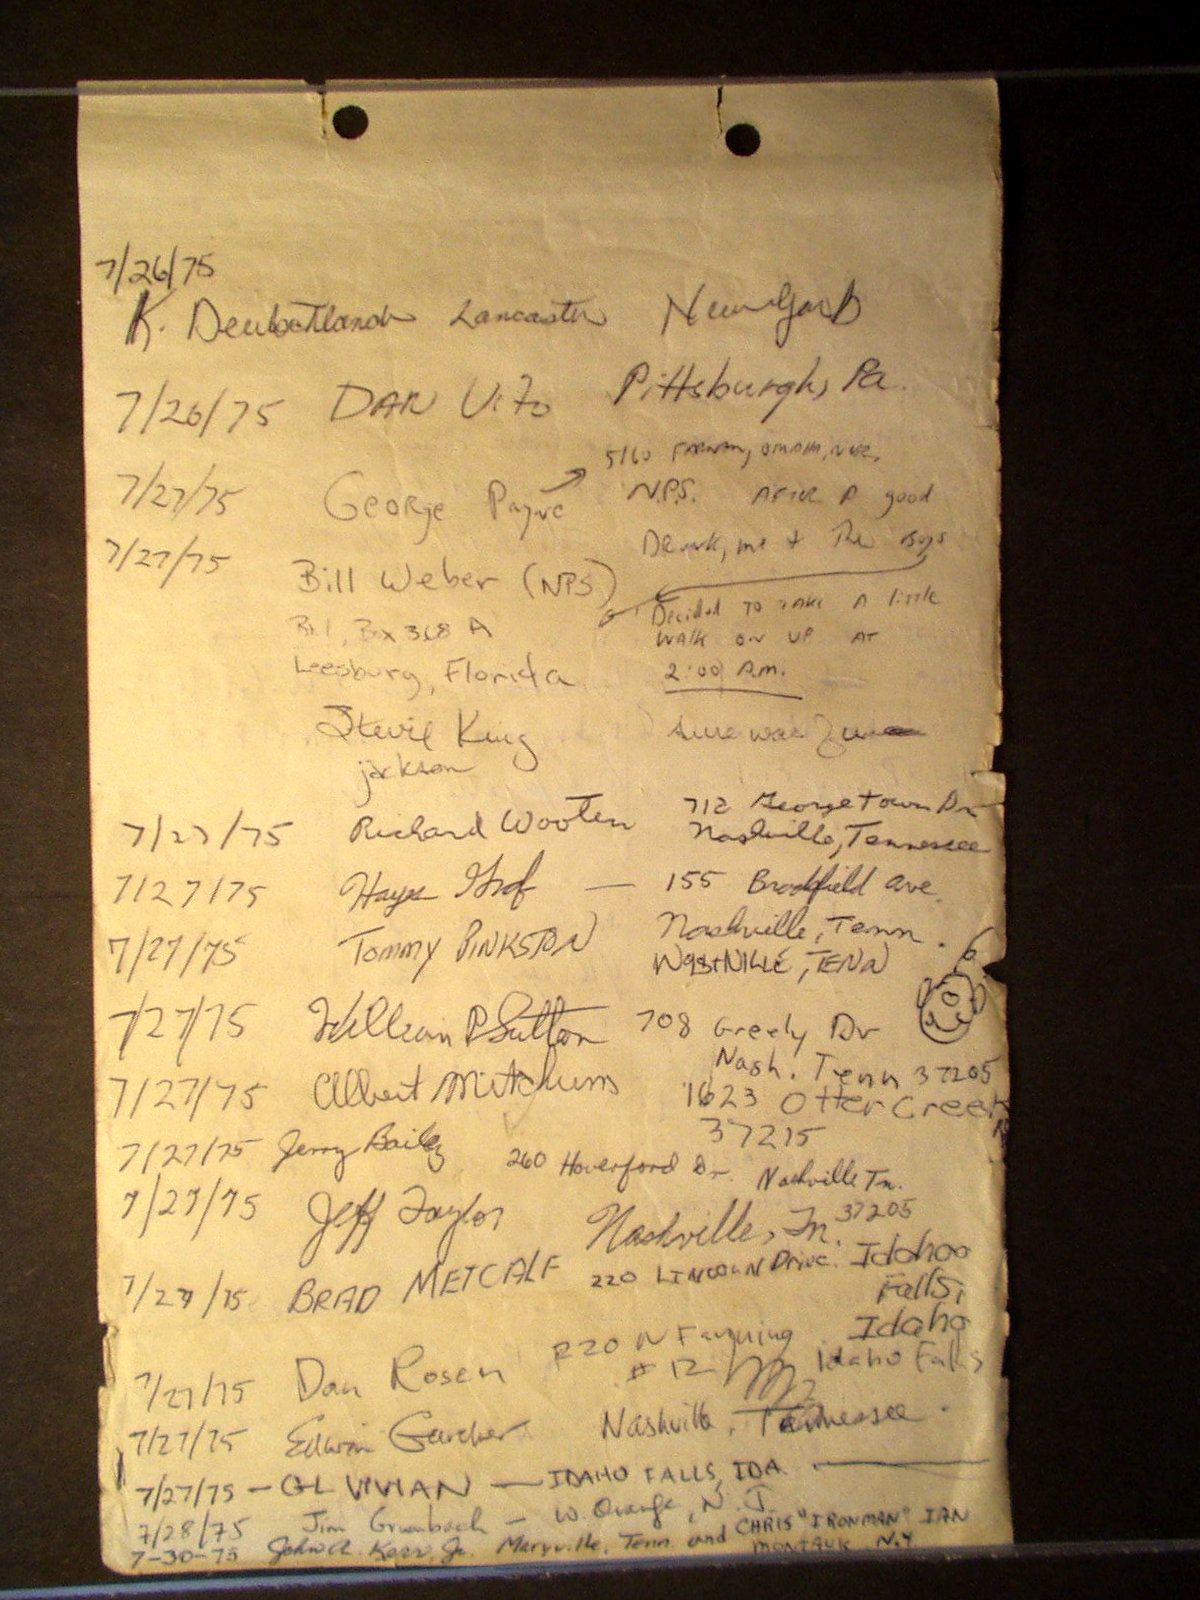 7/26/75
K. Lancaster New York
7/26/75 DAN Vito Pittsburgh, Pa.
7/27/75 George Payne 5160 FARNAM, OMAHA, NEB.
N.P.S. AFTER A good
Drunk, me + The Boys
7/27/75 Bill Weber (NPS)
Decided TO TAKE A little
WALK ON UP AT
2:00 A.m.
Rt 1, Box 368 A
Leesburg, Florida
Stevie King Sure was
jackson
7/27/75 Richard Wooten 712 Georgetown Dr
Nashville, Tennessee
7/27/75 Hays — 155 Brookfield ave.
Nashville, Tenn.
7/27/75 TOMMY PINKSTON , TENN
7/27/75 William P Sutton 708 Greely Dr
Nash. Tenn 37205
7/27/75 Albert Mitchum 1623 Otter Creek
37215
7/27/75 Jerry Bailey 260 Haverford Dr. Nashville Tn.
37205
7/27/75 Jeff Taylor Nashville, Tn.
7/27/75 BRAD METCALF 220 LINCOLN Drive. Idaho
Falls,
Idaho
7/27/75 Dan Rosen 220 N Fanning
#12 Idaho Falls
7/27/75 Edwin Nashville, Tennessee.
7/27/75 — GL VIVIAN — IDAHO FALLS, IDA.
7/28/75 Jim Grumbach — W. Orange, N.J.
7-30-75 John A. Kerr, Jr. Maryville, Tenn. and CHRIS "IRONMAN" IAN
MONTAUK N.Y